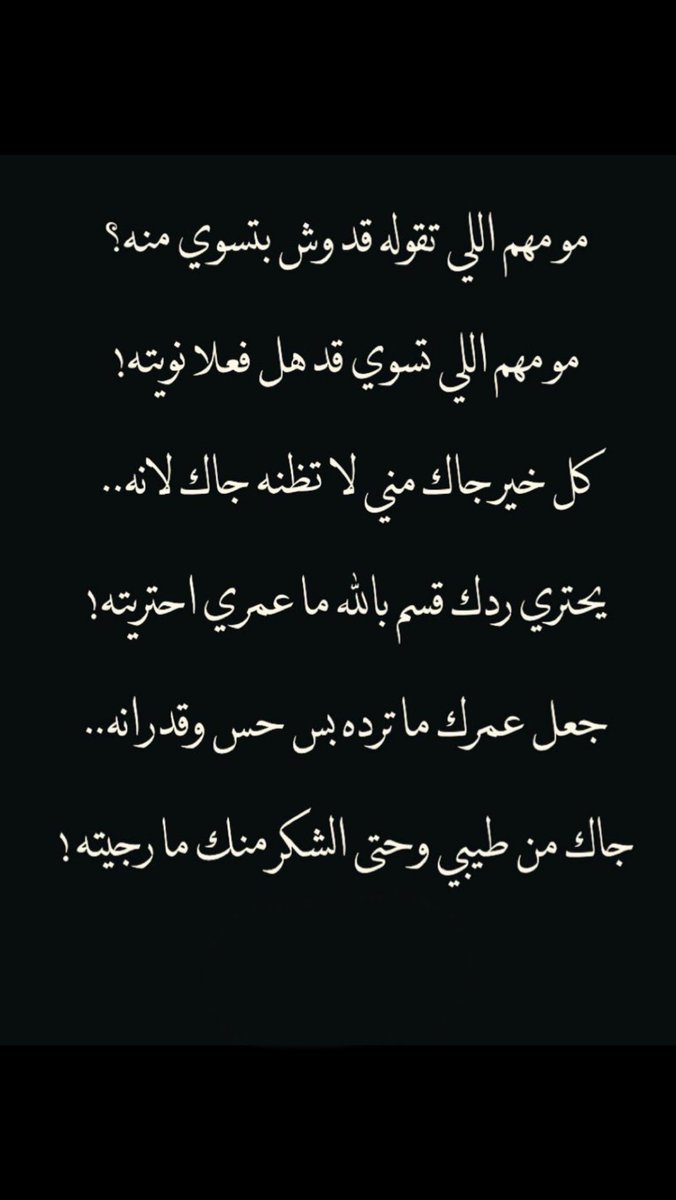 مو مهم اللي تقوله قد وش بتسوي منه؟
مو مهم اللي تسوي قد هل فعلا نويته!
كل خير جاك مني لا تظنه جاك لانه..
يحتري ردك قسم بالله ما عمري احتريته!
جعل عمرك ما ترده بس حس وقدر انه..
جاك من طيبي وحتى الشكر منك ما رجيته!